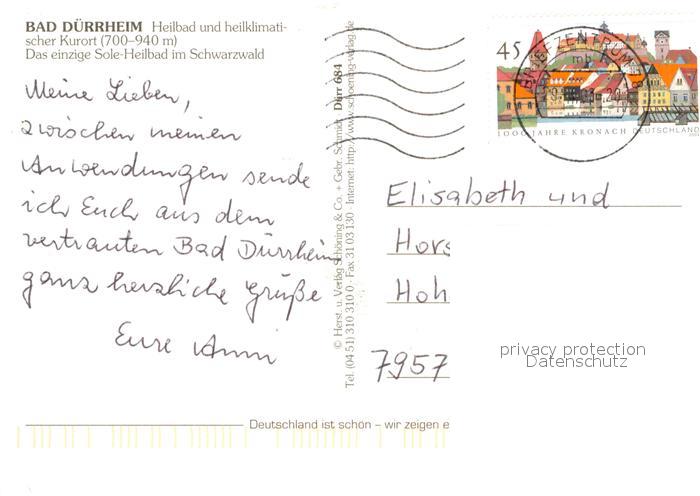 BAD DÜRRHEIM Heilbad und heilklimati-
scher Kurort (700–940 m)
Das einzige Sole-Heilbad im Schwarzwald
Meine Lieben,
zwischen meinen
Anwendungen sende
ich Euch aus dem
vertrauten Bad Dürrheim
ganz herzliche Grüße
Eure Anni
© Herst. u. Verlag Schöning & Co. + Gebr. Schmidt Dürr 684
Tel. (04 51) 310 310 0 · Fax 31 03 130 Internet: http://www.schoening-verlag.de
45
BRIEFZENTRUM 78
mb
1000 JAHRE KRONACH DEUTSCHLAND
Elisabeth und
Hors
Hoh
7957
privacy protection
Datenschutz
Deutschland ist schön – wir zeigen e